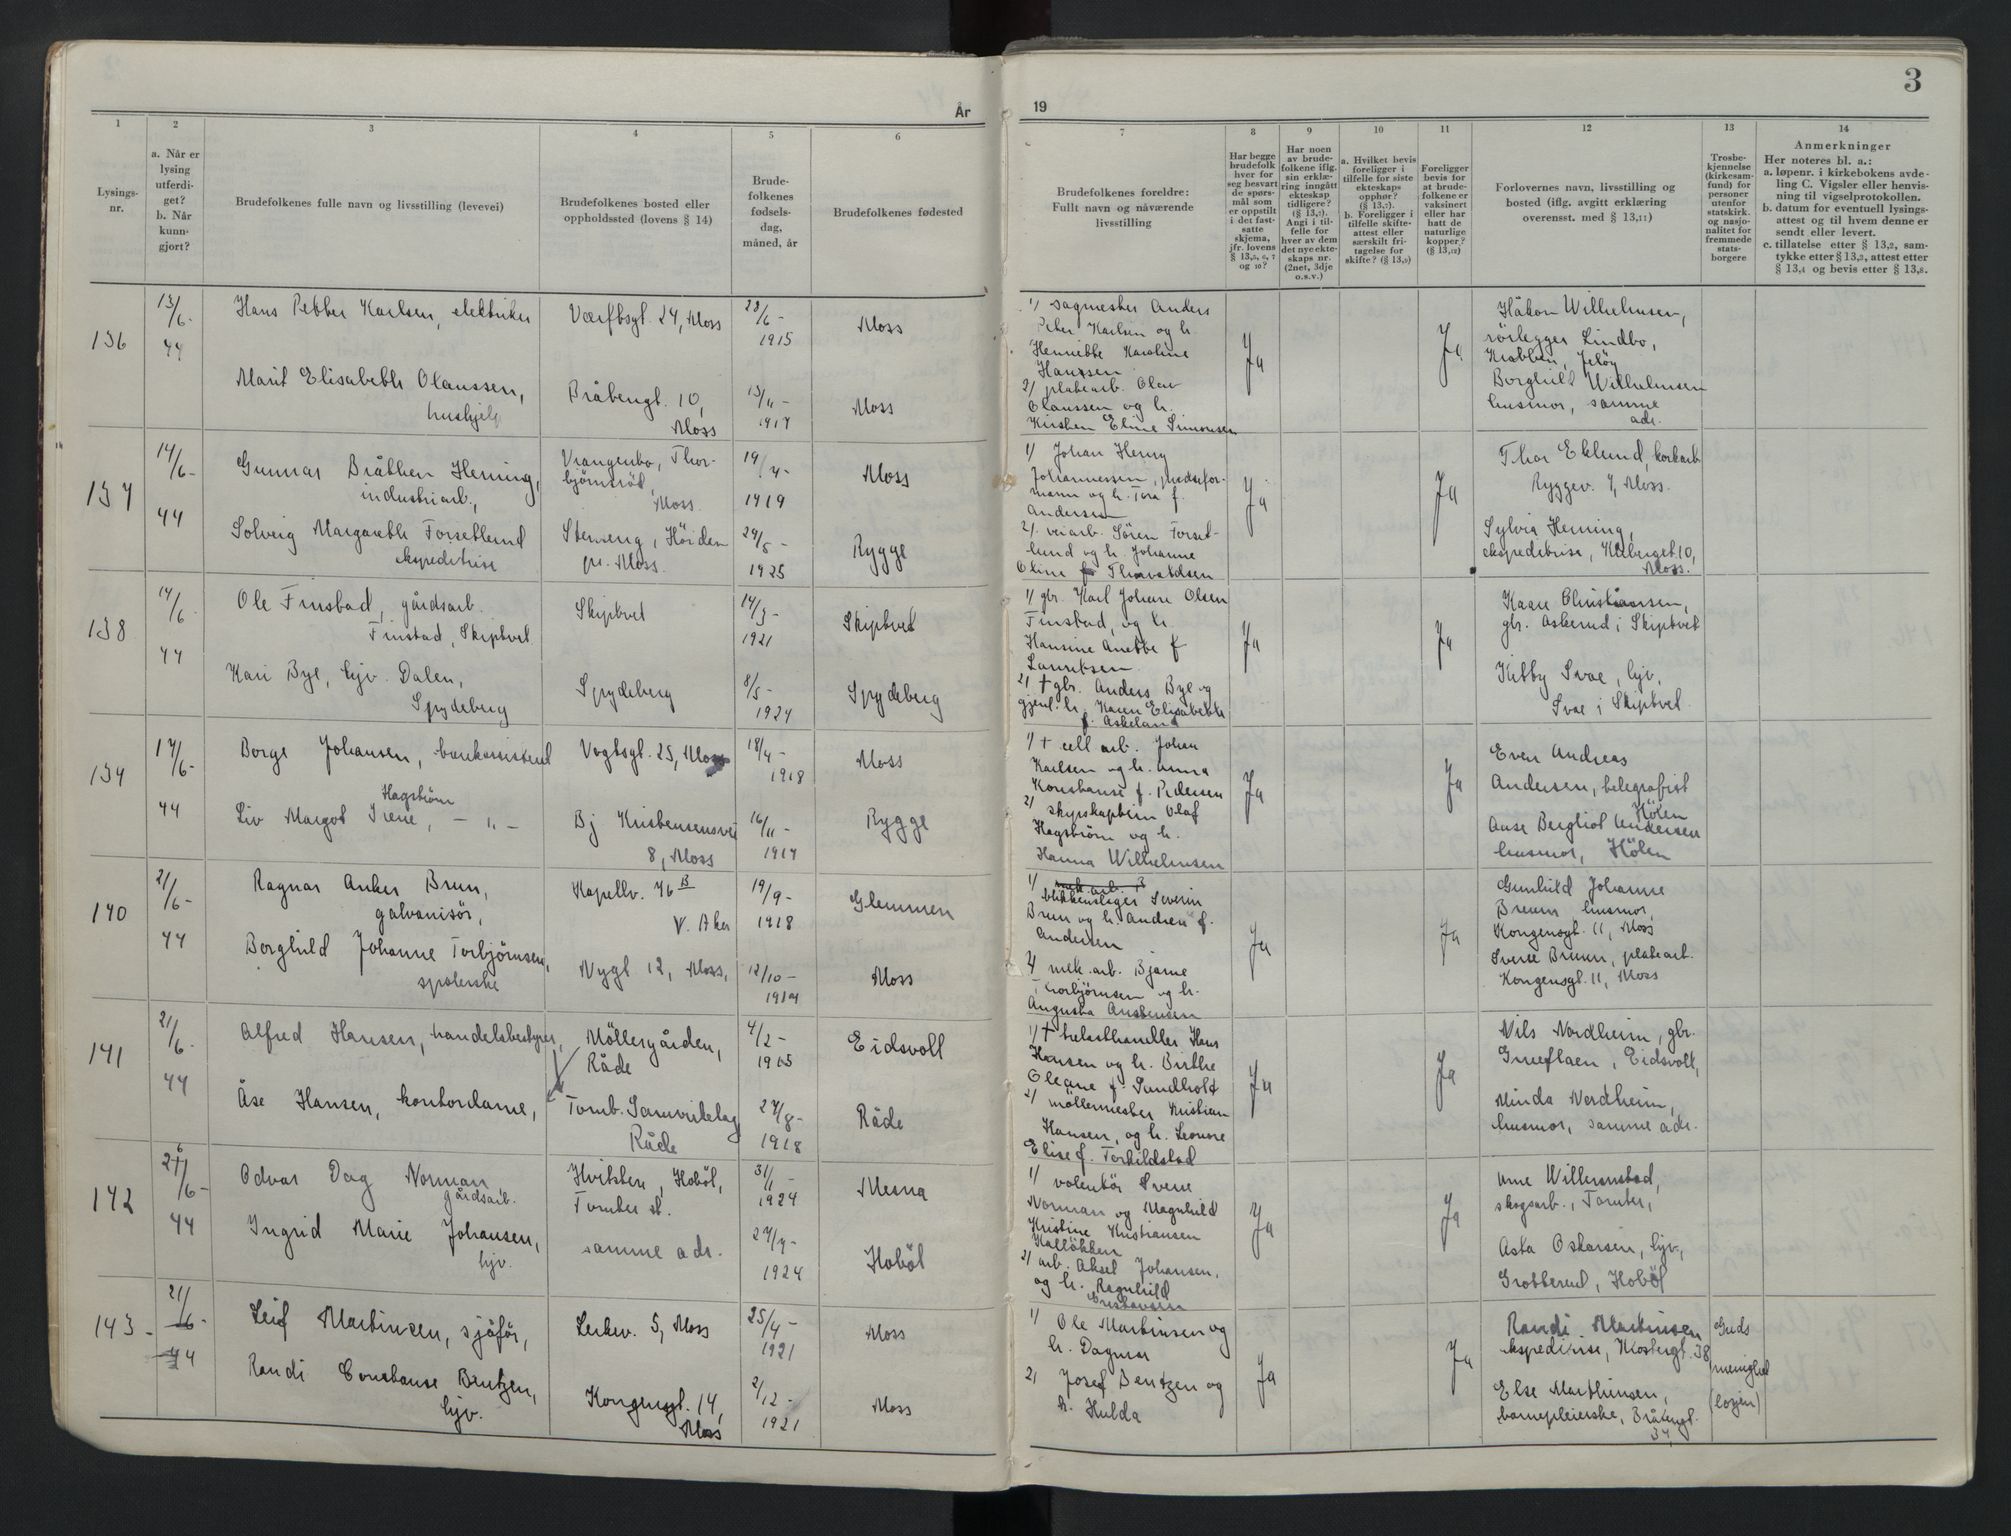 3
År
19
1
2
3
4
5
6
7
8
9
10
11
12
13
14
Lysings-
nr.
a. Når er
lysing
utferdi-
get?
b. Når
kunn-
gjort?
Brudefolkenes fulle navn og livsstilling (levevei)
Brudefolkenes bosted eller
oppholdssted (lovens § 14)
Brude-
folkenes
fødsels-
dag,
måned, år
Brudefolkenes fødested
Brudefolkenes foreldre:
Fullt navn og nåværende
livsstilling
Har begge
brudefolk
hver for
seg besvart
de spørs-
mål som
er oppstilt
i det fast-
satte
skjema,
jfr. lovens
§ 13,5, 6, 7
og 10?
Har noen
av brude-
folkene iflg.
sin erklæ-
ring inngått
ekteskap
tidligere?
(§ 13,7).
Angi i til-
felle for
hver av dem
det nye ekte-
skaps nr.
(2net, 3dje
o.s.v.)
a. Hvilket bevis
foreligger i
tilfelle for siste
ekteskaps
opphør?
(§ 13,7).
b. Foreligger i
tilfelle skifte-
attest eller
særskilt fri-
tagelse for
skifte? (§ 13,9)
Foreligger
bevis for
at brude-
folkene er
vaksinert
eller har
hatt de
naturlige
kopper?
(§ 13,12)
Forlovernes navn, livsstilling og
bosted (iflg. avgitt erklæring
overensst. med § 13,11)
Trosbe-
kjennelse
(kirkesam-
fund) for
personer
utenfor
statskirk.
og nasjo-
nalitet for
fremmede
stats-
borgere
Anmerkninger
Her noteres bl. a.:
a. løpenr. i kirkebokens avde-
ling C. Vigsler eller henvis-
ning til vigselprotokollen.
b. datum for eventuell lysings-
attest og til hvem denne er
sendt eller levert.
c. tillatelse etter § 13,2, sam-
tykke etter § 13,3, attest etter
§ 13,4 og bevis etter § 13,8.
136
13/6-
44
Hans Petter Karlsen, elektriker
Værftsgt. 24, Moss
28/6-
1915
Moss
Marit Elisabeth Olaussen,
hushjelp
Bråtengt. 10,
Moss
1917
Moss
1/ sagmester Anders
Peter Karlsen og h.
Henriette Karoline
Hanssen
2/ platearb. Olav
Olaussen og h.
Kirsten Eline Simonsen
Ja
Ja
Håkon Wilhelmsen,
rörlegger Lindbo,
Krabben, Jelöy
Borghild Wilhelmsen
husmor, samme
adr.
137
14/6-
44
Gunnar Bråthen Herning,
industriarb.,
Vrangenbo, Thor-
bjørnsröd,
Moss.
19/4-
1919
Moss
Solveig Margareth Forsetlund
ekspeditrise
Stenseng, Höiden
pr. Moss.
29/5-
1925
Rygge
1/ Johan Henry
Johannessen, pudsefor-
mann og h. Tora f.
Andersen
2/ veiarb. Sören Forset-
lund og h. Johanne
Oline f. Thorvaldsen
Ja
Ja
Thor Eklund, korkarb
Ryggev. 7, Moss.
Sylvia Herning,
ekspeditrise, 10,
Moss.
138
14/6-
44
Ole Finstad, gårdsarb.
Finstad, Skiptvet
Skiptvet
14/3-
1921
Skiptvet
Kari Bye, hjv. Dalen,
Spydeberg
Spydeberg
8/5-
1924
Spydeberg
1/ gbr. Karl Johan Olsen
Finstad, og h.
Hansine Anette f
Lauritsen
2/ † gbr. Anders Bye og
gjenl. h. Karen Elisabeth
f. Askeland
Ja
Ja
Kaare Christiansen,
gbr. Askerud i Skiptvet
Kitty Svae, hjv,
Svae i Skiptvet
139
17/6-
44
Borge Johansen, bankassistent
Vogtsgt. 25, Moss
18/4-
1918
Moss
Hagström
Liv Margot Irene, - " -
Bj Kristensensvei
8, Moss
16/11-
1917
Rygge
1/ † cell arb. Johan
Karlsen og h. Anna
Konstanse f. Pedersen
2/ skipskaptein Olaf
Hagström og h.
Hanna Wilhelmsen
Ja
Ja
Even Andreas
Andersen, telegrafist
Hölen
Anse Bergliot Andersen
husmor, Hölen
140
21/6-
44
Ragnar Anker Brun,
galvanisör,
Kapellv. 76 B
V. Aker
19/9-
1918
Glemmen
Borghild Johanne Torbjörnsen,
spolerske
Nygt 12, Moss,
12/10-
Moss
1/ mek. arb. B
blikkenslager Severin
Brun og h. Andrea f.
Andersen
2/ mek. arb. Bjarne
Thorbjörnsen og h.
Augusta Anstensen
Ja
Ja
Gunhild Johanne
Bruun husmor,
Kongensgt. 11, Moss
Sverre Bruun, platearb.
Kongensgt. 11, Moss
141
21/6-
44
Alfred Hansen, handelsbestyrer,
Möllergården,
Råde
4/2-
1915
Eidsvoll
Åse Hansen, kontordame,
Tomb. Samvirkelag
Råde
27/8-
1918
Råde
1/ † trelasthandler Hans
Hansen og h. Birthe
Oleane f. Sundholt
2/ möllermester Kristian
Hansen, og h. Leonore
Elise f. Torkildstad
Ja
Ja
Nils Nordheim, gbr.
Eidsvoll,
Minda Nordheim,
husmor, samme adr.
142
21/6-
44
Odvar Dag Norman,
gårdsarb.
Hvitsten, Hoböl,
Tomter st.
31/1-
1924
Mesna
Ingrid Marie Johansen,
hjv.
samme adr.
27/4-
1924
Hoböl
1/ volontör Sverre
Norman og Magnhild
Kristine Kristiansen
Kallökken
2/ arb. Aksel Johansen,
og h. Ragnhild
Gustavsen
Ja
Ja
Arne Willerunstad,
skogsarb., Tomter,
Asta Oskarsen, hjv,
Grotterud, Hoböl
143-
21/6-
44
Leif Martinsen, sjåför,
Lerkev. 5, Moss
25/4-
1921
Moss
Randi Constanse Bentzen,
hjv.
Kongensgt. 14,
Moss
2/12-
1921
Moss
1/ Ole Martinsen og
h. Dagmar
2/ Josef Bentzen og
h. Hulda
Ja
Ja
Randi Martinsen
ekspeditrise, Klostergt. 38
Else Marthinsen,
barnepleierske, Bråtengt.
34,
Guds
menighet
(logen)